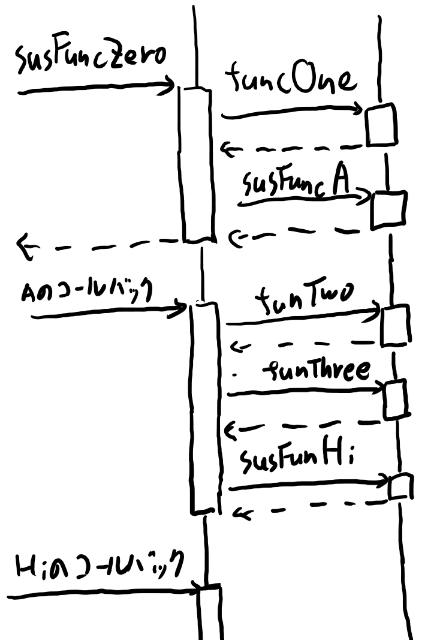 susFuncZero
funcOne
susFuncA
Aのコールバック
funTwo
funThree
susFunHi
Hiのコールバック